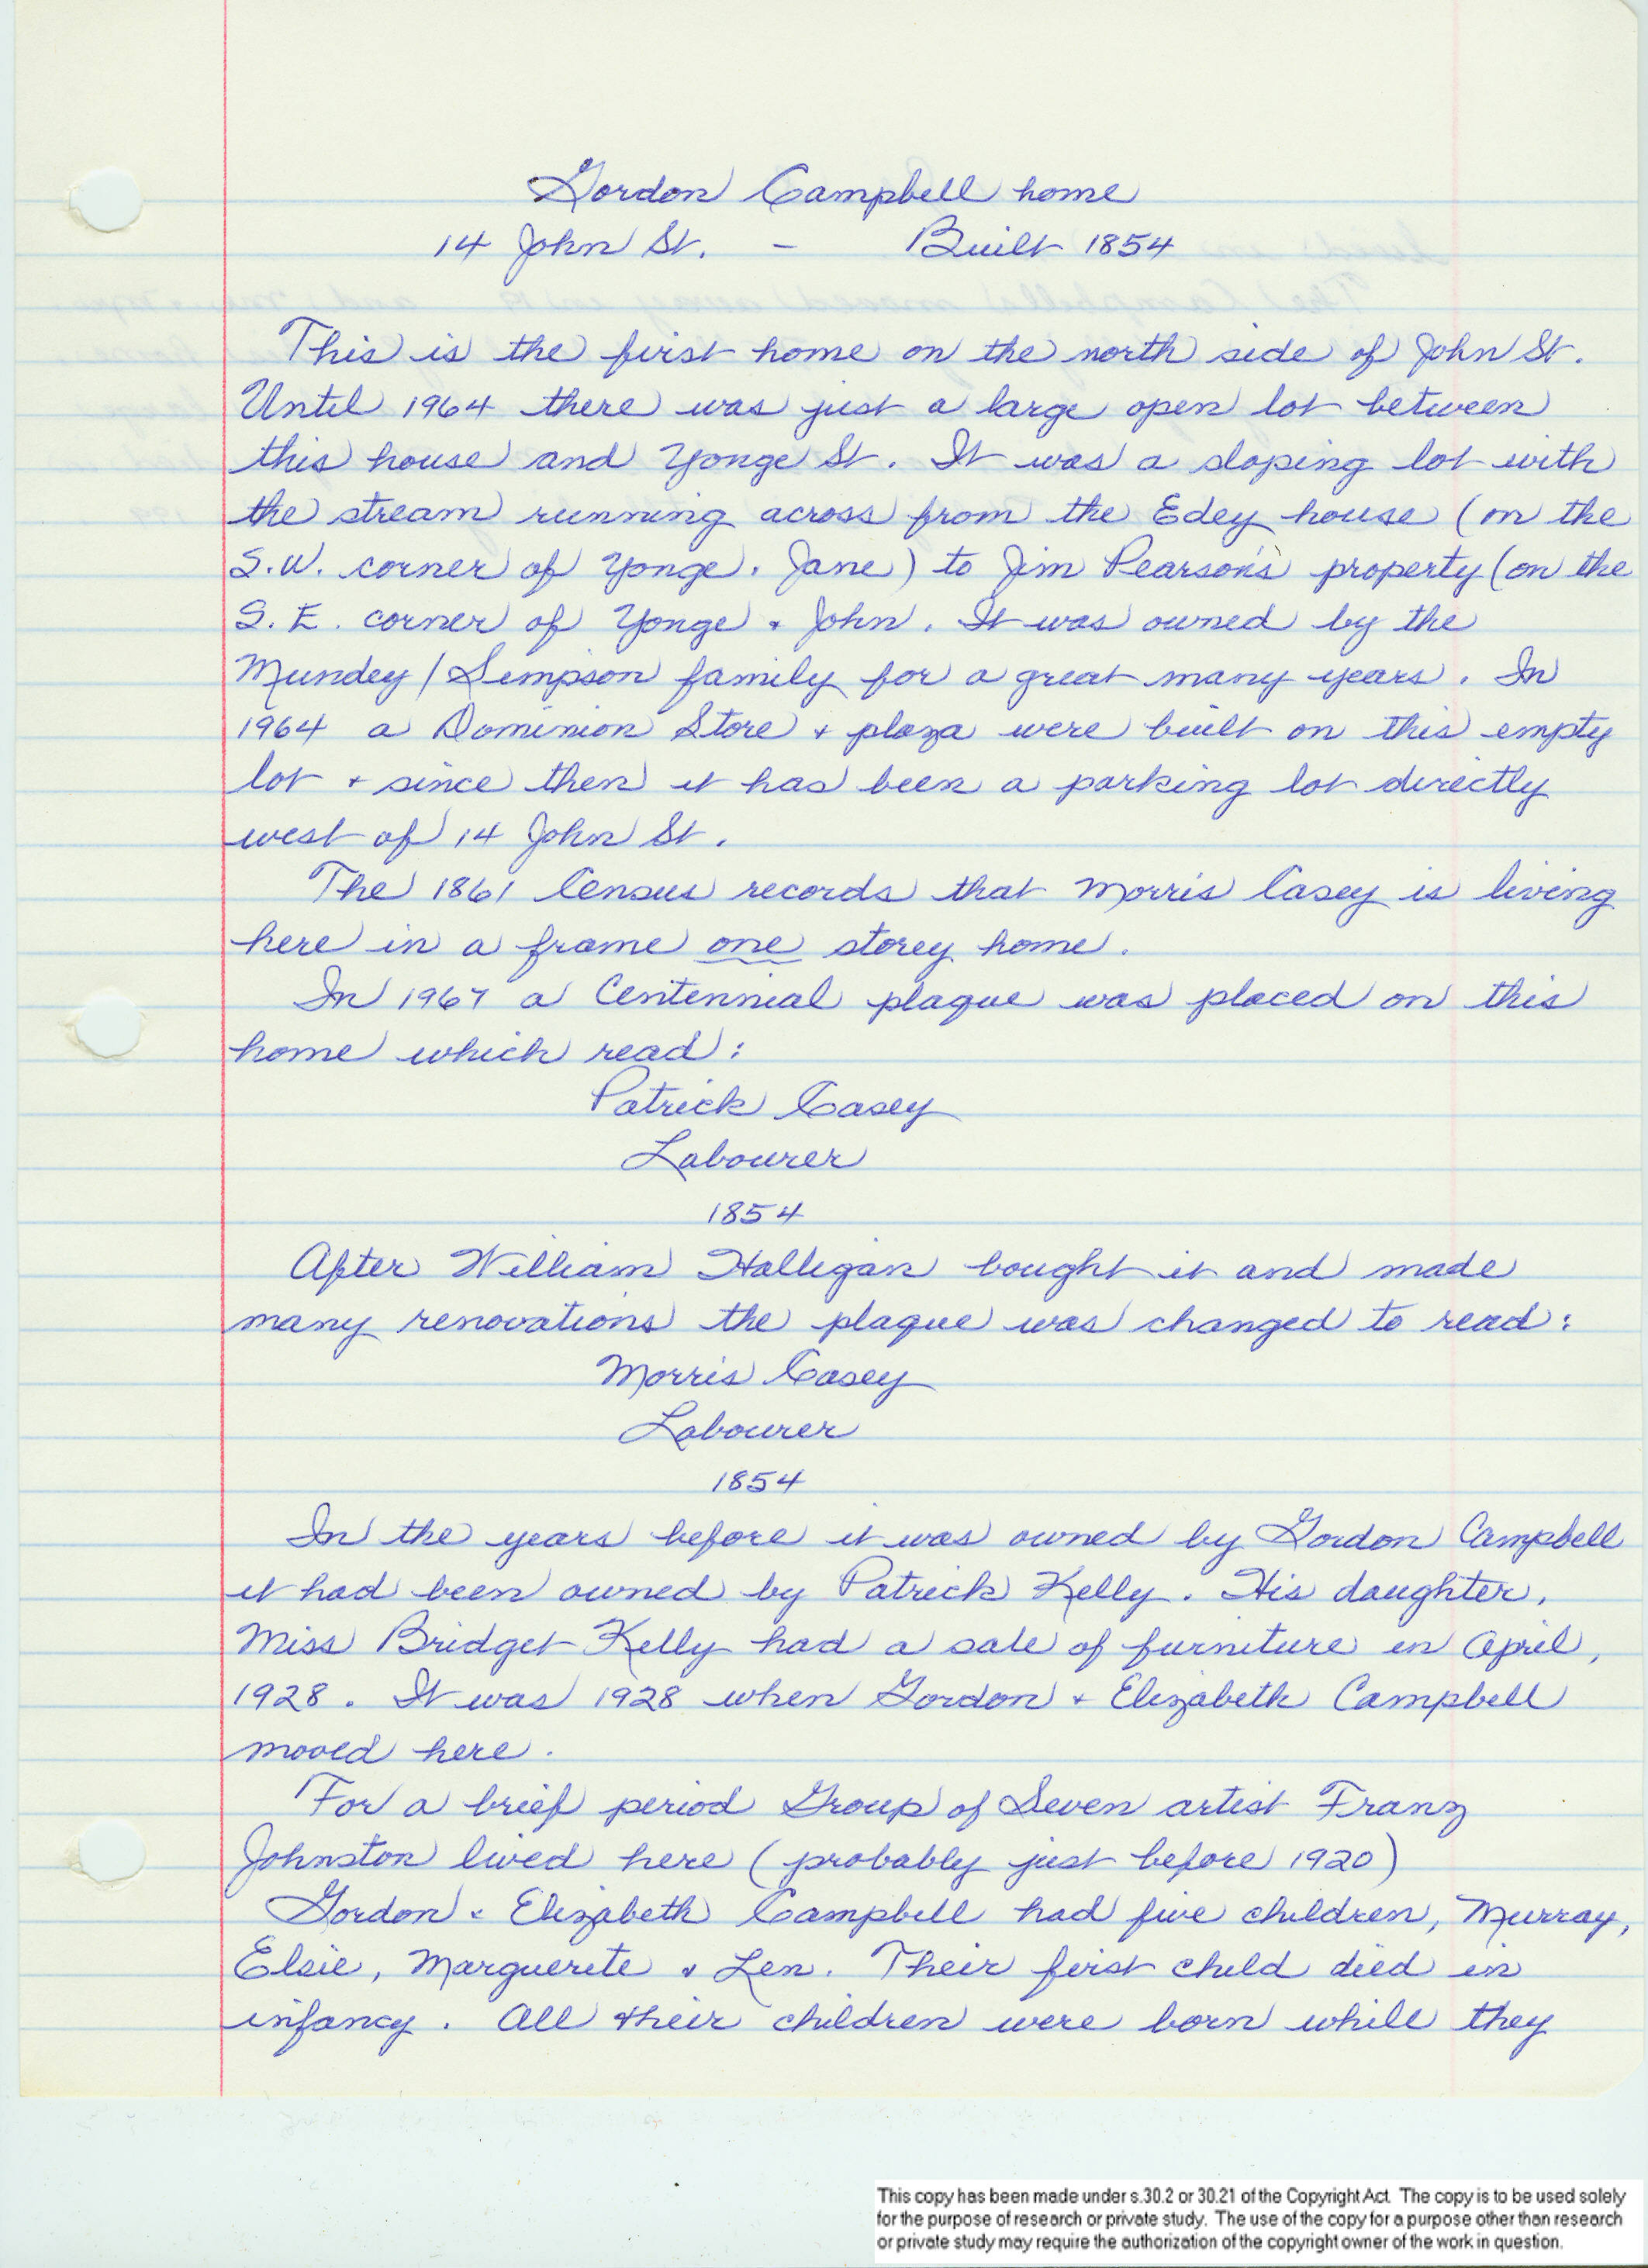 Gordon Campbell home
14 John St. - Built 1854
This is the first home on the north side of John St.
Until 1964 there was just a large open lot between
this house and Yonge St. It was a sloping lot with
the stream running across from the Edey house (on the
S.W. corner of Yonge + Jane) to Jim Pearson's property (on the
S.E. corner of Yonge + John. It was owned by the
Mundey / Simpson family for a great many years. In
1964 a Dominion Store + plaza were built on this empty
lot + since then it has been a parking lot directly
west of 14 John St.
The 1861 Census records that Morris Casey is living
here in a frame one storey home.
In 1967 a Centennial plaque was placed on this
home which read:
Patrick Casey
Labourer
1854
After William Halligan bought it and made
many renovations the plaque was changed to read:
Morris Casey
Labourer
1854
In the years before it was owned by Gordon Campbell
it had been owned by Patrick Kelly. His daughter,
Miss Bridget Kelly had a sale of furniture in April,
1928. It was 1928 when Gordon + Elizabeth Campbell
moved here.
For a brief period Group of Seven artist Franz
Johnston lived here (probably just before 1920)
Gordon + Elizabeth Campbell had five children, Murray,
Elsie, Marguerite + Len. Their first child died in
infancy. All their children were born while they
This copy has been made under s.30.2 or 30.21 of the Copyright Act. The copy is to be used solely
for the purpose of research or private study. The use of the copy for a purpose other than research
or private study may require the authorization of the copyright owner of the work in question.